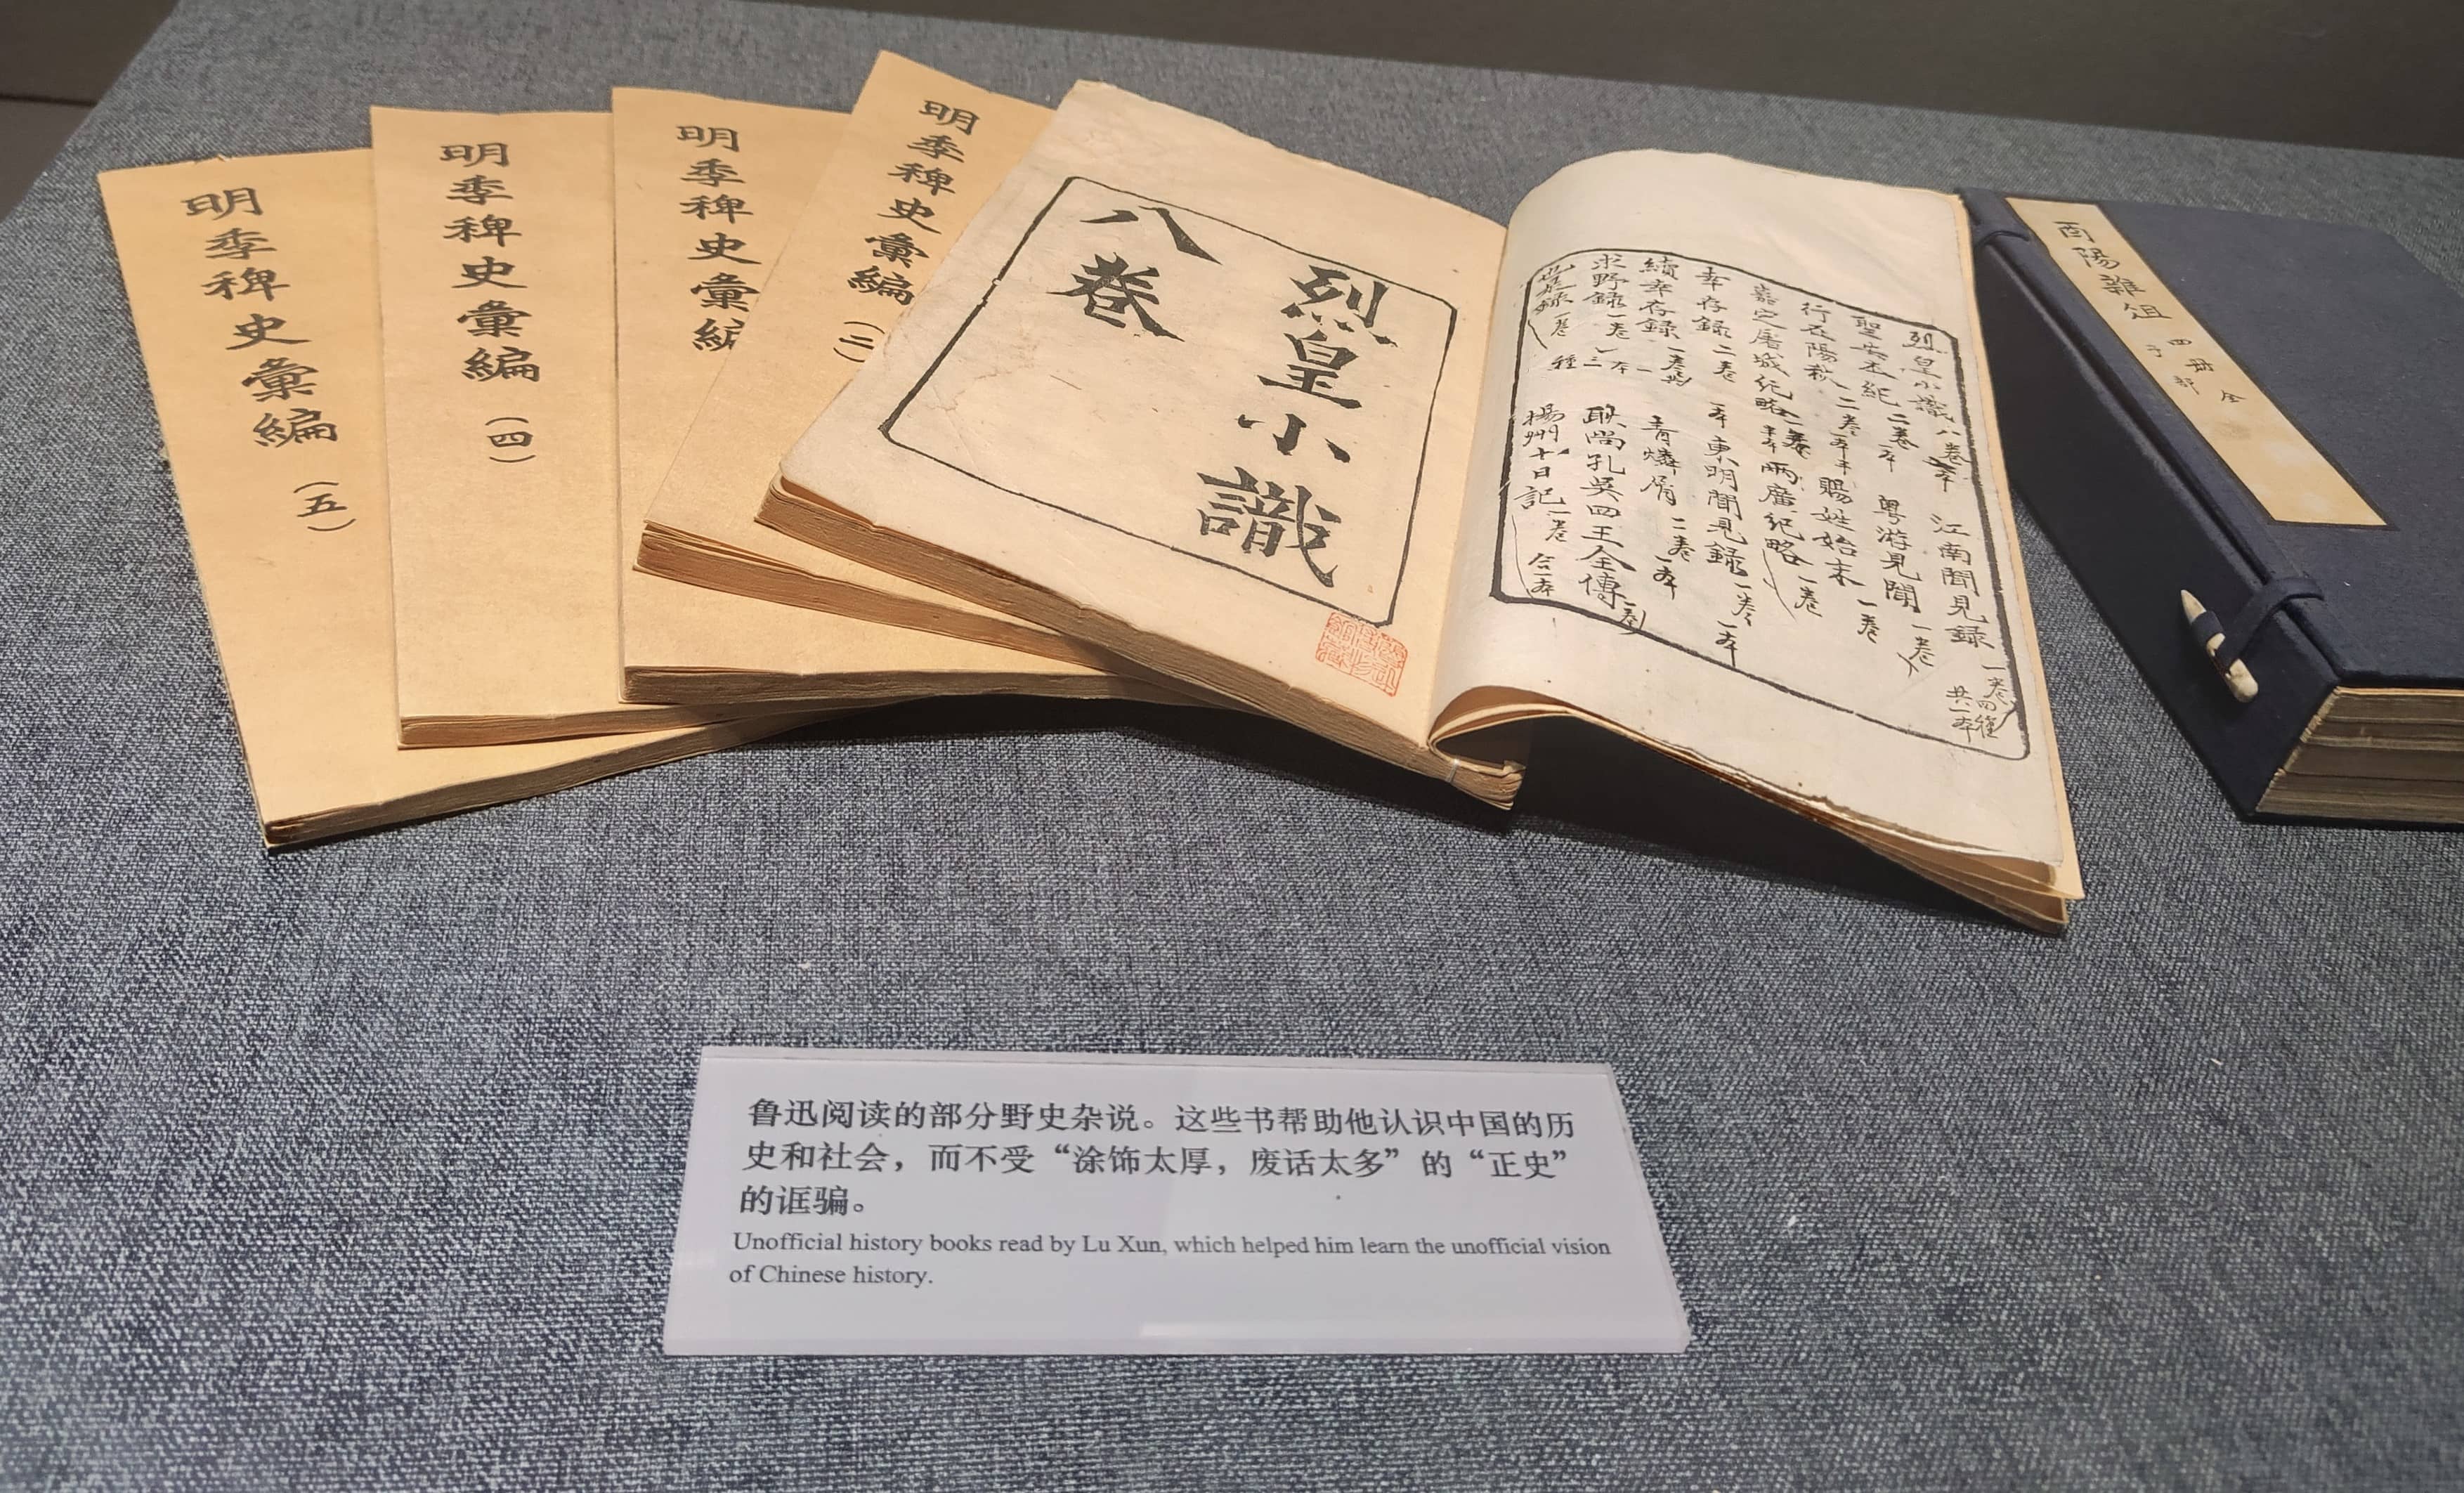 明季稗史彙編
（五）
明季稗史彙編
（四）
明季稗史彙編
明季稗史彙編
（二）
烈皇小識
八卷
烈皇小識 八卷 一本 江南聞見録 一卷 四種共一本
聖安本紀 二卷 一本 粤游見聞 一卷
行在陽秋 二卷 一本 賜姓始末 一卷
嘉定屠城紀略 一卷 一本 兩廣紀略 一卷
幸存録 二卷 一本 東明聞見録 一卷 一本
續幸存録 一卷 共一本 青燐屑 二卷 一本
求野録 一卷 三種 耿尚孔吳四王全傳 一卷
也是録 一卷 揚州十日記 一卷 合一本
酉陽雜俎
四册 全
子部
鲁迅阅读的部分野史杂说。这些书帮助他认识中国的历
史和社会，而不受“涂饰太厚，废话太多”的“正史”
的诓骗。
Unofficial history books read by Lu Xun, which helped him learn the unofficial vision
of Chinese history.